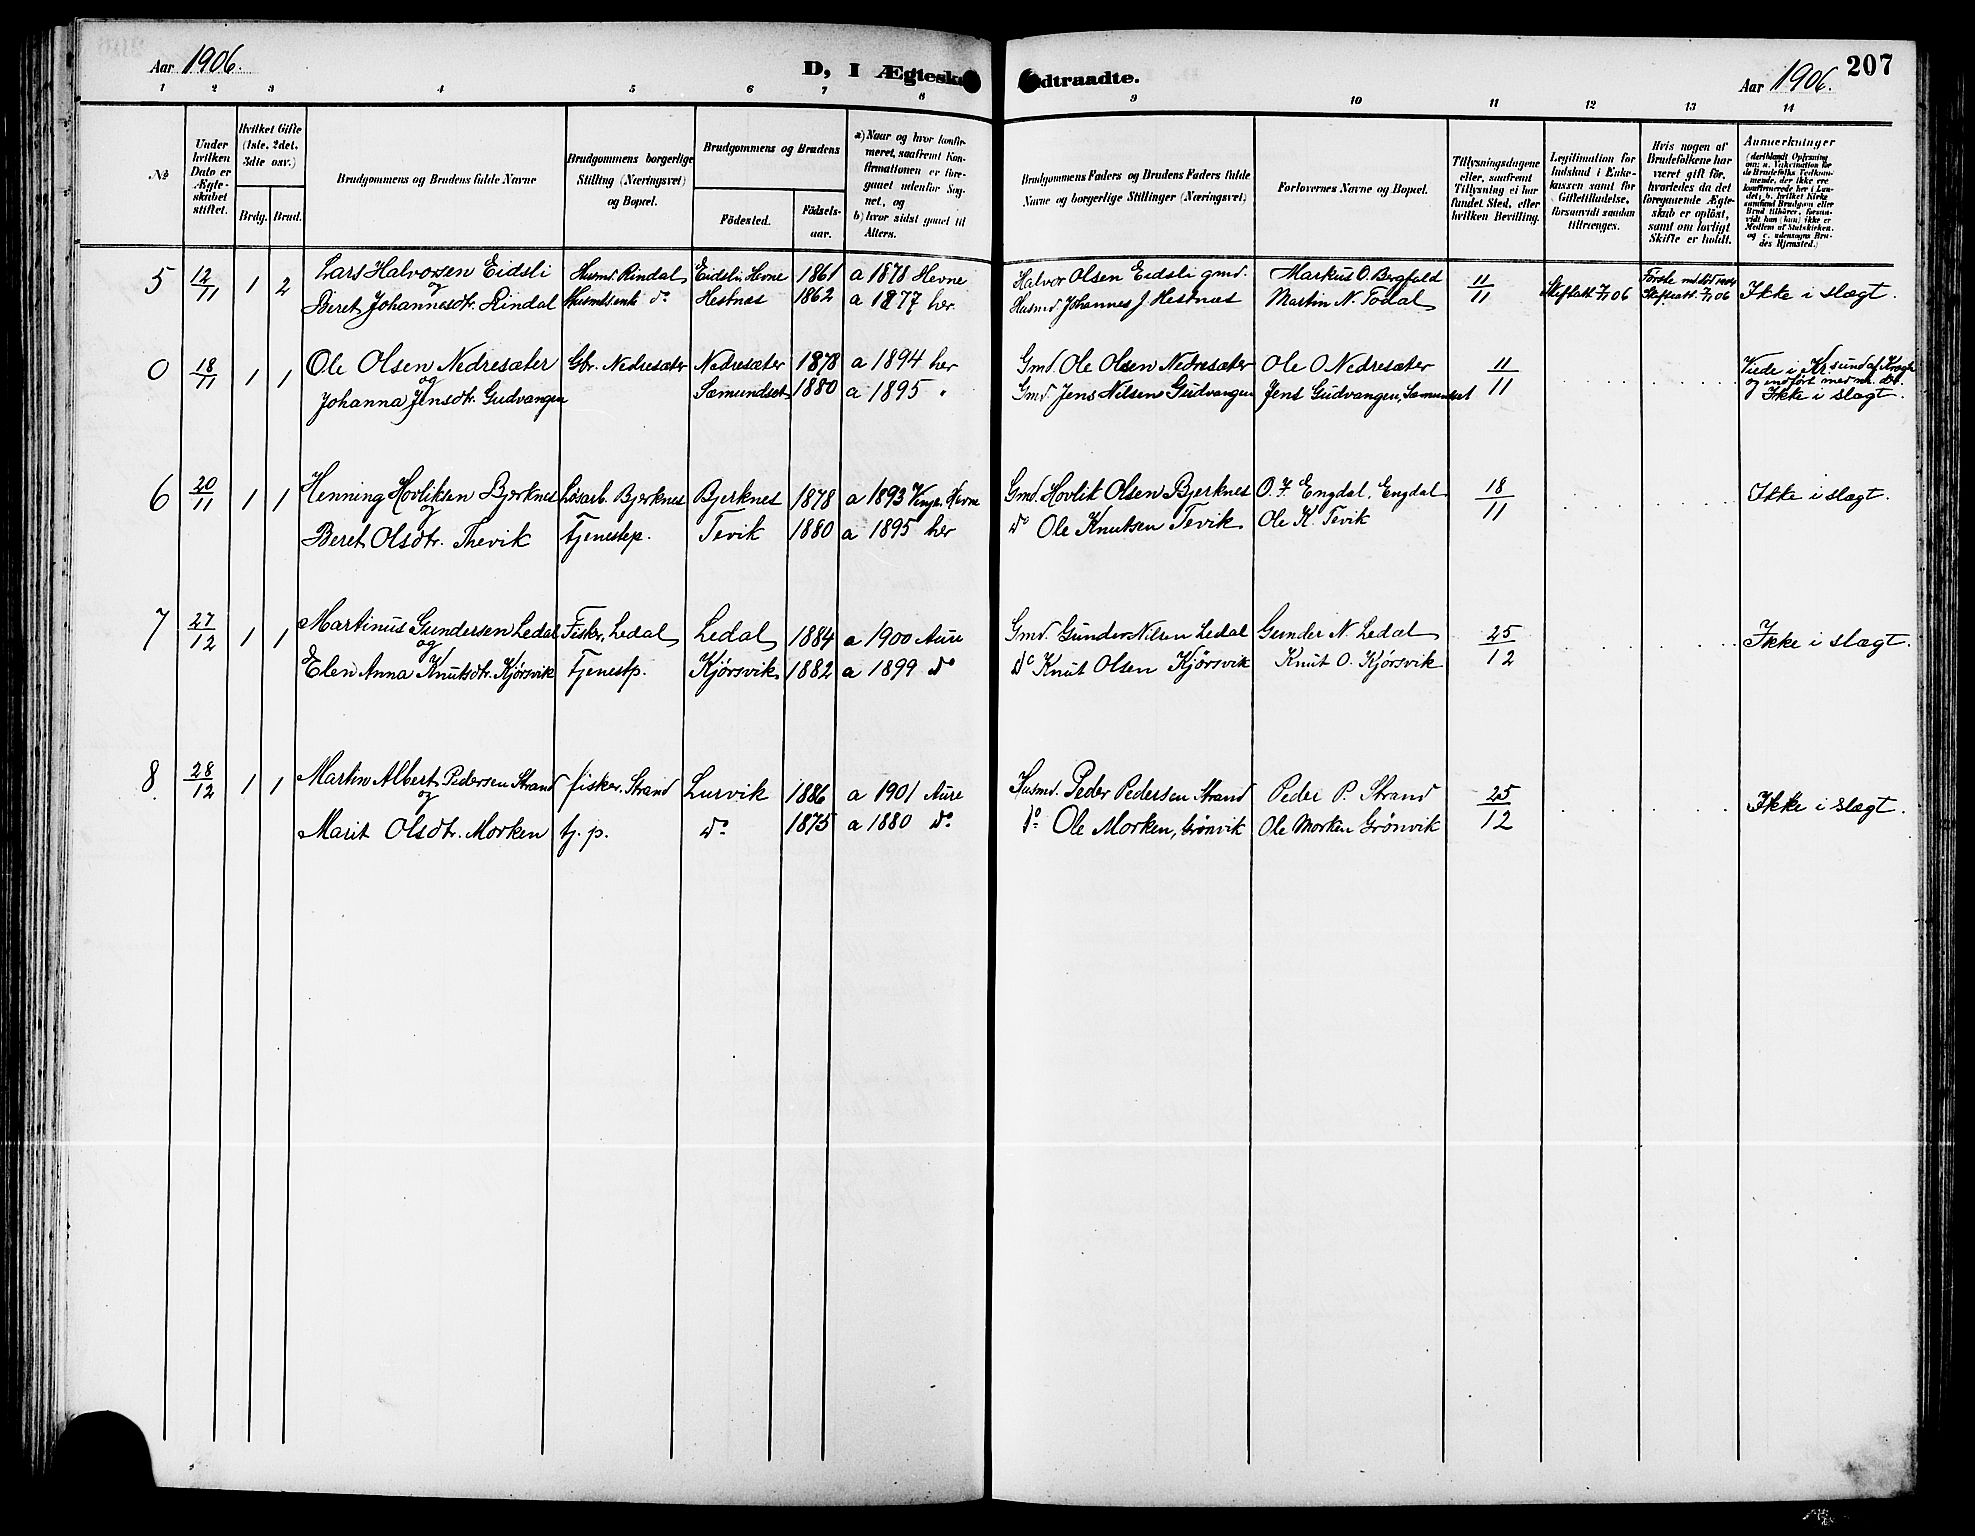 Aar 1906.
D, I Ægteska
1 2 3 4 5 6 7 8
No
Under hvilken Dato er Ægteskabet stiftet.
Hvilket Gifte (1ste, 2det, 3die osv.)
Brdg. Brud.
Brudgommens og Brudens fulde Navne
Brudgommens borgerlige Stilling (Næringsvei) og Bopæl.
Brudgommens og Brudens
Födested. Födselsaar.
a) Naar og hvor konfirmeret, saafremt Konfirmationen er foregaaet udenfor Sognet, og
b) hvor sidst gaaet til Alters.
5 12/11 1 2 Lars Halvorsen Eidsli Husmd. Rindal Eidsli, Hevne 1861 a 1878 Hevne
og
Beret Johannesdtr. Rindal Husmdsenke do Hestnes 1862 a 1877 her.
0 18/11 1 1 Ole Olsen Nedresæter Gbr. Nedresæter Nedresæter 1878 a 1894 her
og
Johanna Jensdtr. Gudvangen Sæmundset 1880 a 1895 "
6 20/11 1 1 Henning Hovliksen Bjerknes Løsarb. Bjerknes Bjerknes 1878 a 1893 Hevne
og
Beret Olsdtr. Thevik Tjenestep. Tevik 1880 a 1895 her
7 27/12 1 1 Martinus Gundersen Ledal Fisker, Ledal Ledal 1884 a 1900 Aure
og
Elen Anna Knutsdtr. Kjørsvik Tjenestp. Kjörsvik 1882 a 1899 do
8. 28/12 1 1 Martin Albert Pedersen Strand fisker, Strand Lurvik 1886 a 1901 Aure
og
Marit Olsdtr. Morken tj. p. do. 1875 a 1880 do.
207
Aar 1906.
ndtraadte.
9 10 11 12 13 14
Brudgommens Faders og Brudens Faders fulde Navne og borgerlige Stillinger (Næringsvei)
Forlovernes Navne og Bopæl.
Tillysningsdagene eller, saafremt Tillysning ei har fundet Sted, efter hvilken Bevilling.
Legitimation for Indskud i Enkekassen samt for Giftetilladelse, forsaavidt saadan tiltrænges.
Hvis nogen af Brudefolkene har været gift för, hvorledes da det foregaaende Ægteskab er oplöst, samt om lovligt Skifte er holdt.
Anmærkninger
(deriblandt Oplysning om: a. Vakcination for de Brudefolks Vedkommende, der ikke ere konfirmerede her i Landet; b. hvilket Kirkesamfund Brudgom eller Brud tilhörer, forsaavidt han (hun) ikke er Medlem af Statskirken, og c. udensogns Brudes Hjemsted.)
Halvor Olsen Eidsli gmd. Markus O. Bergfald 11/11 Skifteatt. 7/11 06 Skifteatt. 7/11 06 Ikke i slægt.
Husmd. Johannes J. Hestnes Martin N. Todal
Gmd. Ole Olsen Nedresæter Ole O Nedresæter 11/11 Viede i Kr.sund af Krogh
og indført med nr. 0.
Gmd. Jens Nilsen Gudvangen Jens Gudvangen, Sæmundset Ikke i slægt.
Gmd. Hovlik Olsen Bjerknes O. F. Engdal, Engdal 18/11 Ikke i slægt.
do Ole Knutsen Tevik Ole K. Tevik
Gmd. Gunder Nilsen Ledal Gunder N. Ledal 25/12 Ikke i slægt.
do Knut Olsen Kjörsvik Knut O. Kjörsvik
Husmd. Peder Pedersen Strand Peder P. Strand 25/12 Ikke i slægt.
do. Ole Morken, Grønvik Ole Morken Grønvik